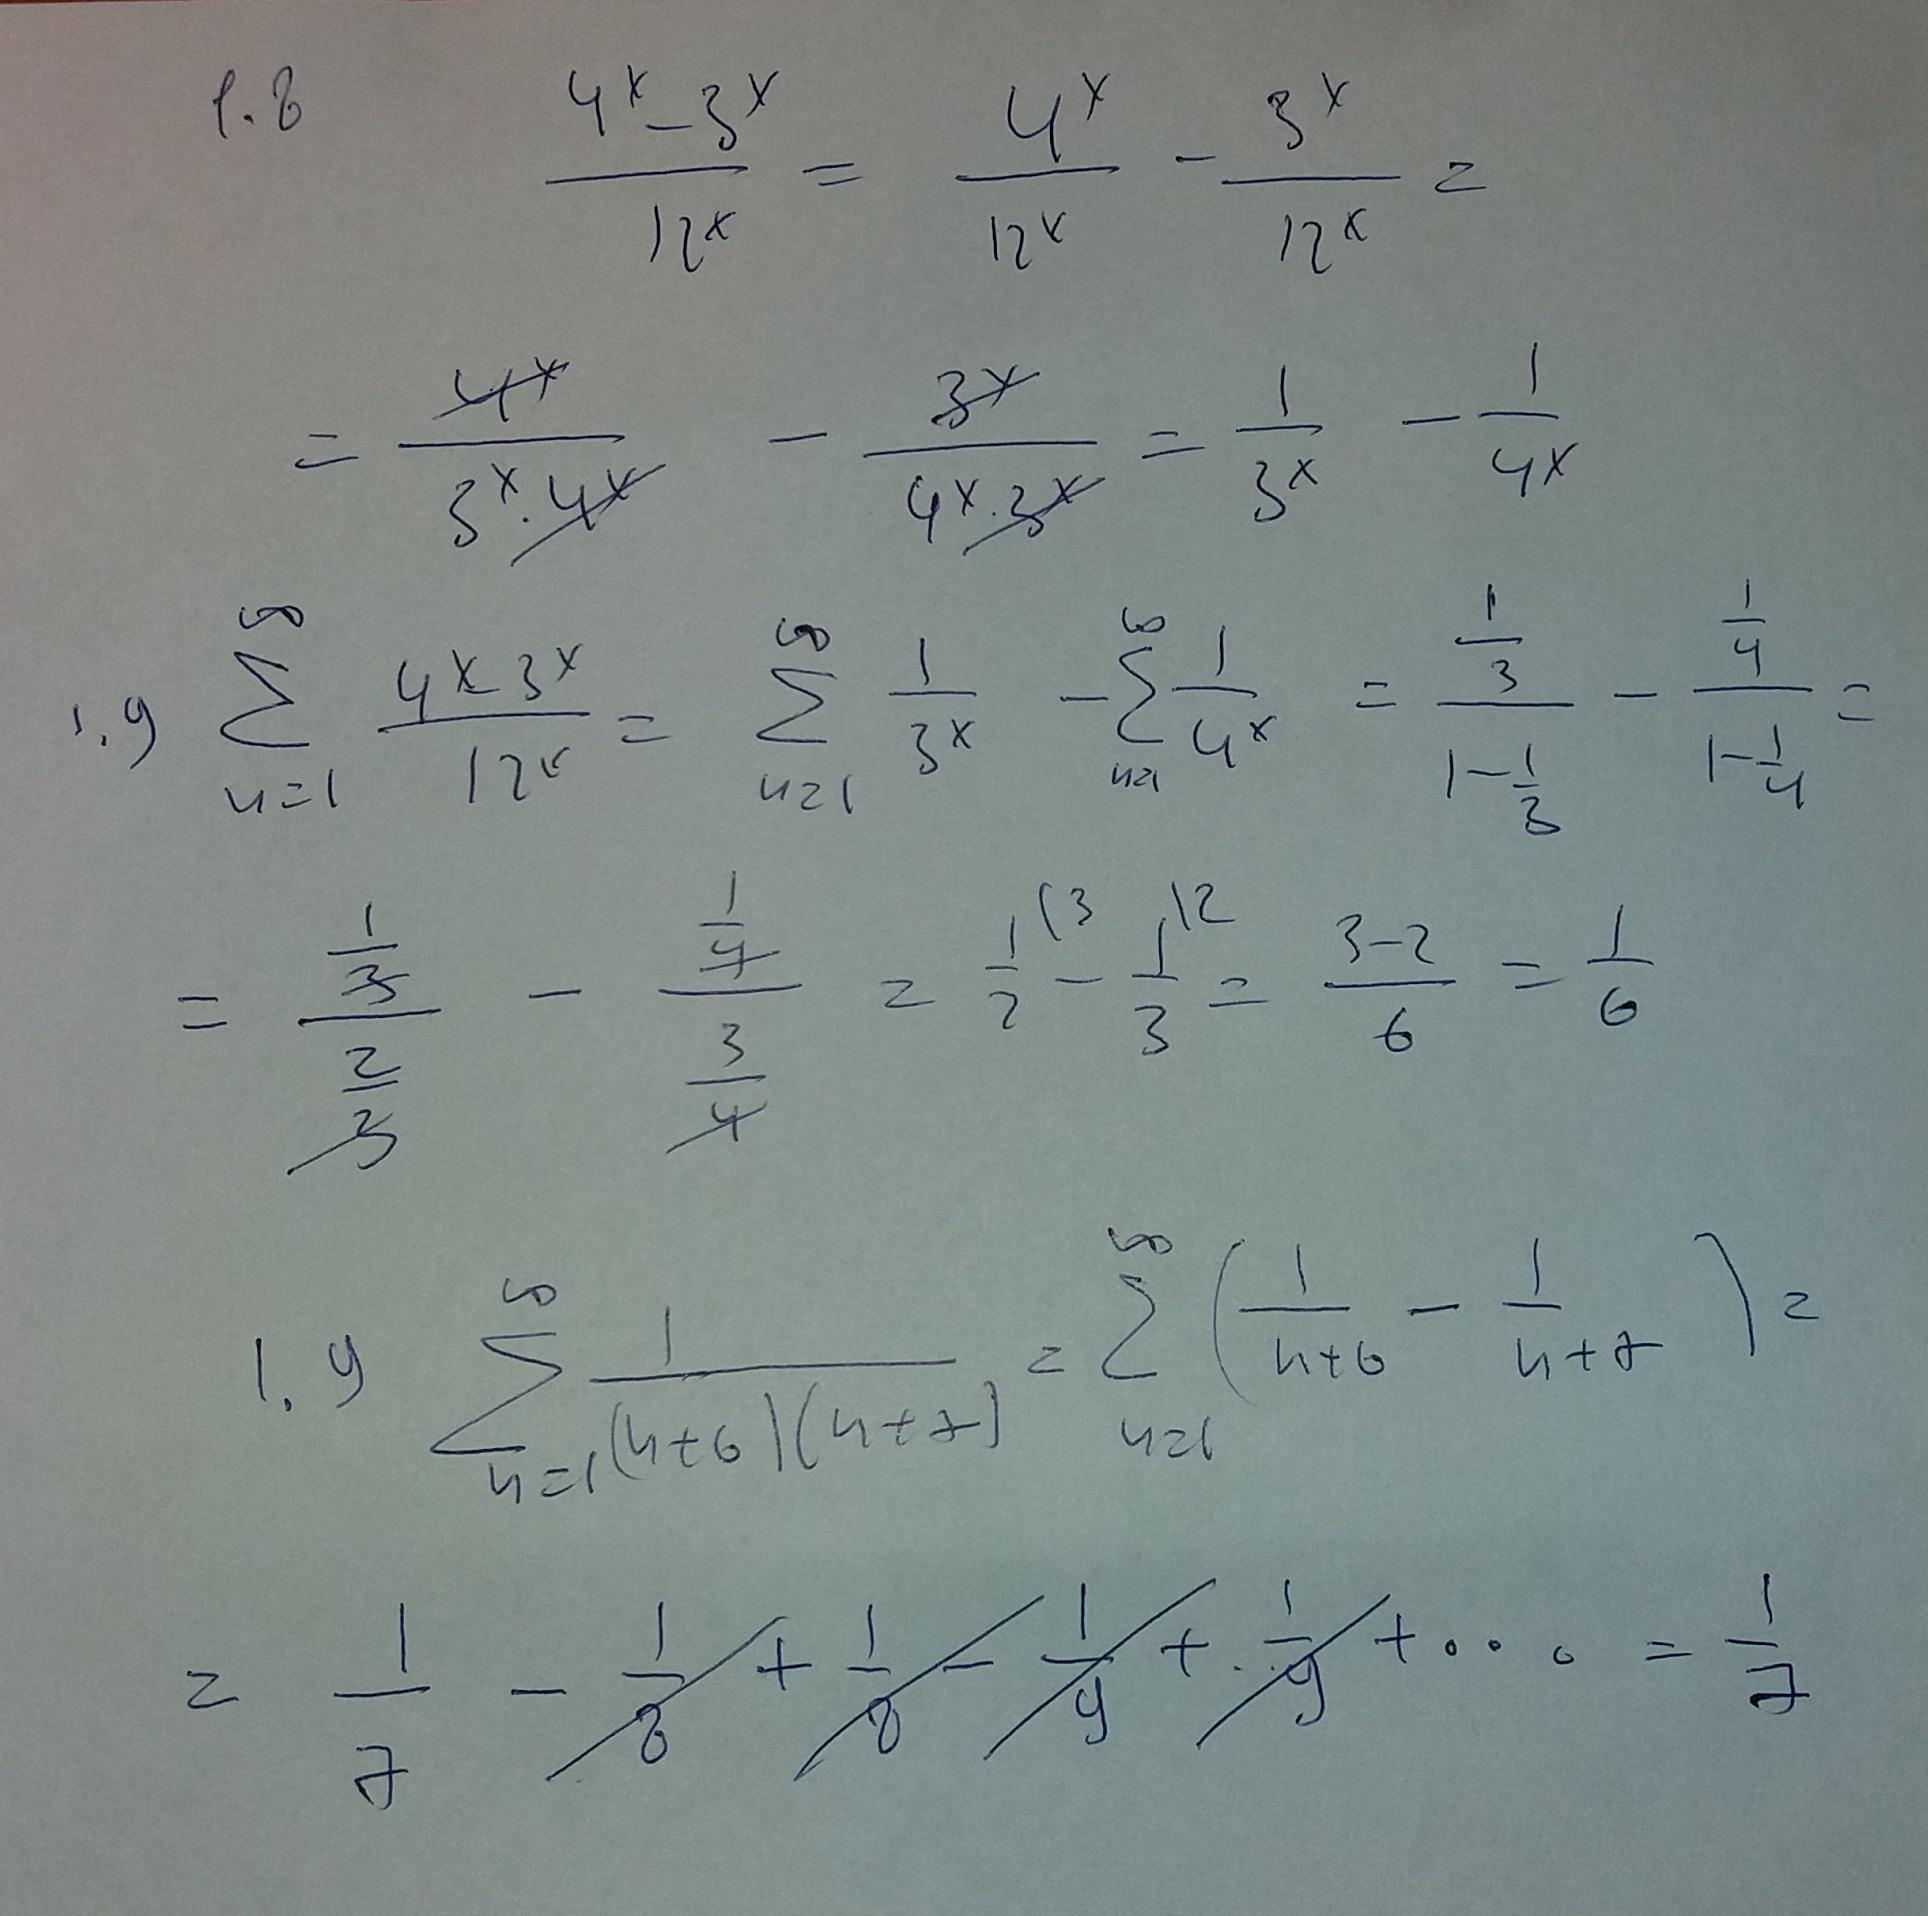 1.8 (4^x - 3^x)/12^x = 4^x/12^x - 3^x/12^x =
= 4^x/(3^x · 4^x) - 3^x/(4^x · 3^x) = 1/3^x - 1/4^x
1.9 ∑_{n=1}^{∞} (4^x - 3^x)/12^x = ∑_{n=1}^{∞} 1/3^x - ∑_{n=1}^{∞} 1/4^x = (1/3)/(1 - 1/3) - (1/4)/(1 - 1/4) =
= (1/3)/(2/3) - (1/4)/(3/4) = 1/2 \3 - 1/3 \2 = (3-2)/6 = 1/6
1.9 ∑_{n=1}^{∞} 1/((n+6)(n+7)) = ∑_{n=1}^{∞} (1/(n+6) - 1/(n+7)) =
= 1/7 - 1/8 + 1/8 - 1/9 + 1/9 + ... = 1/7